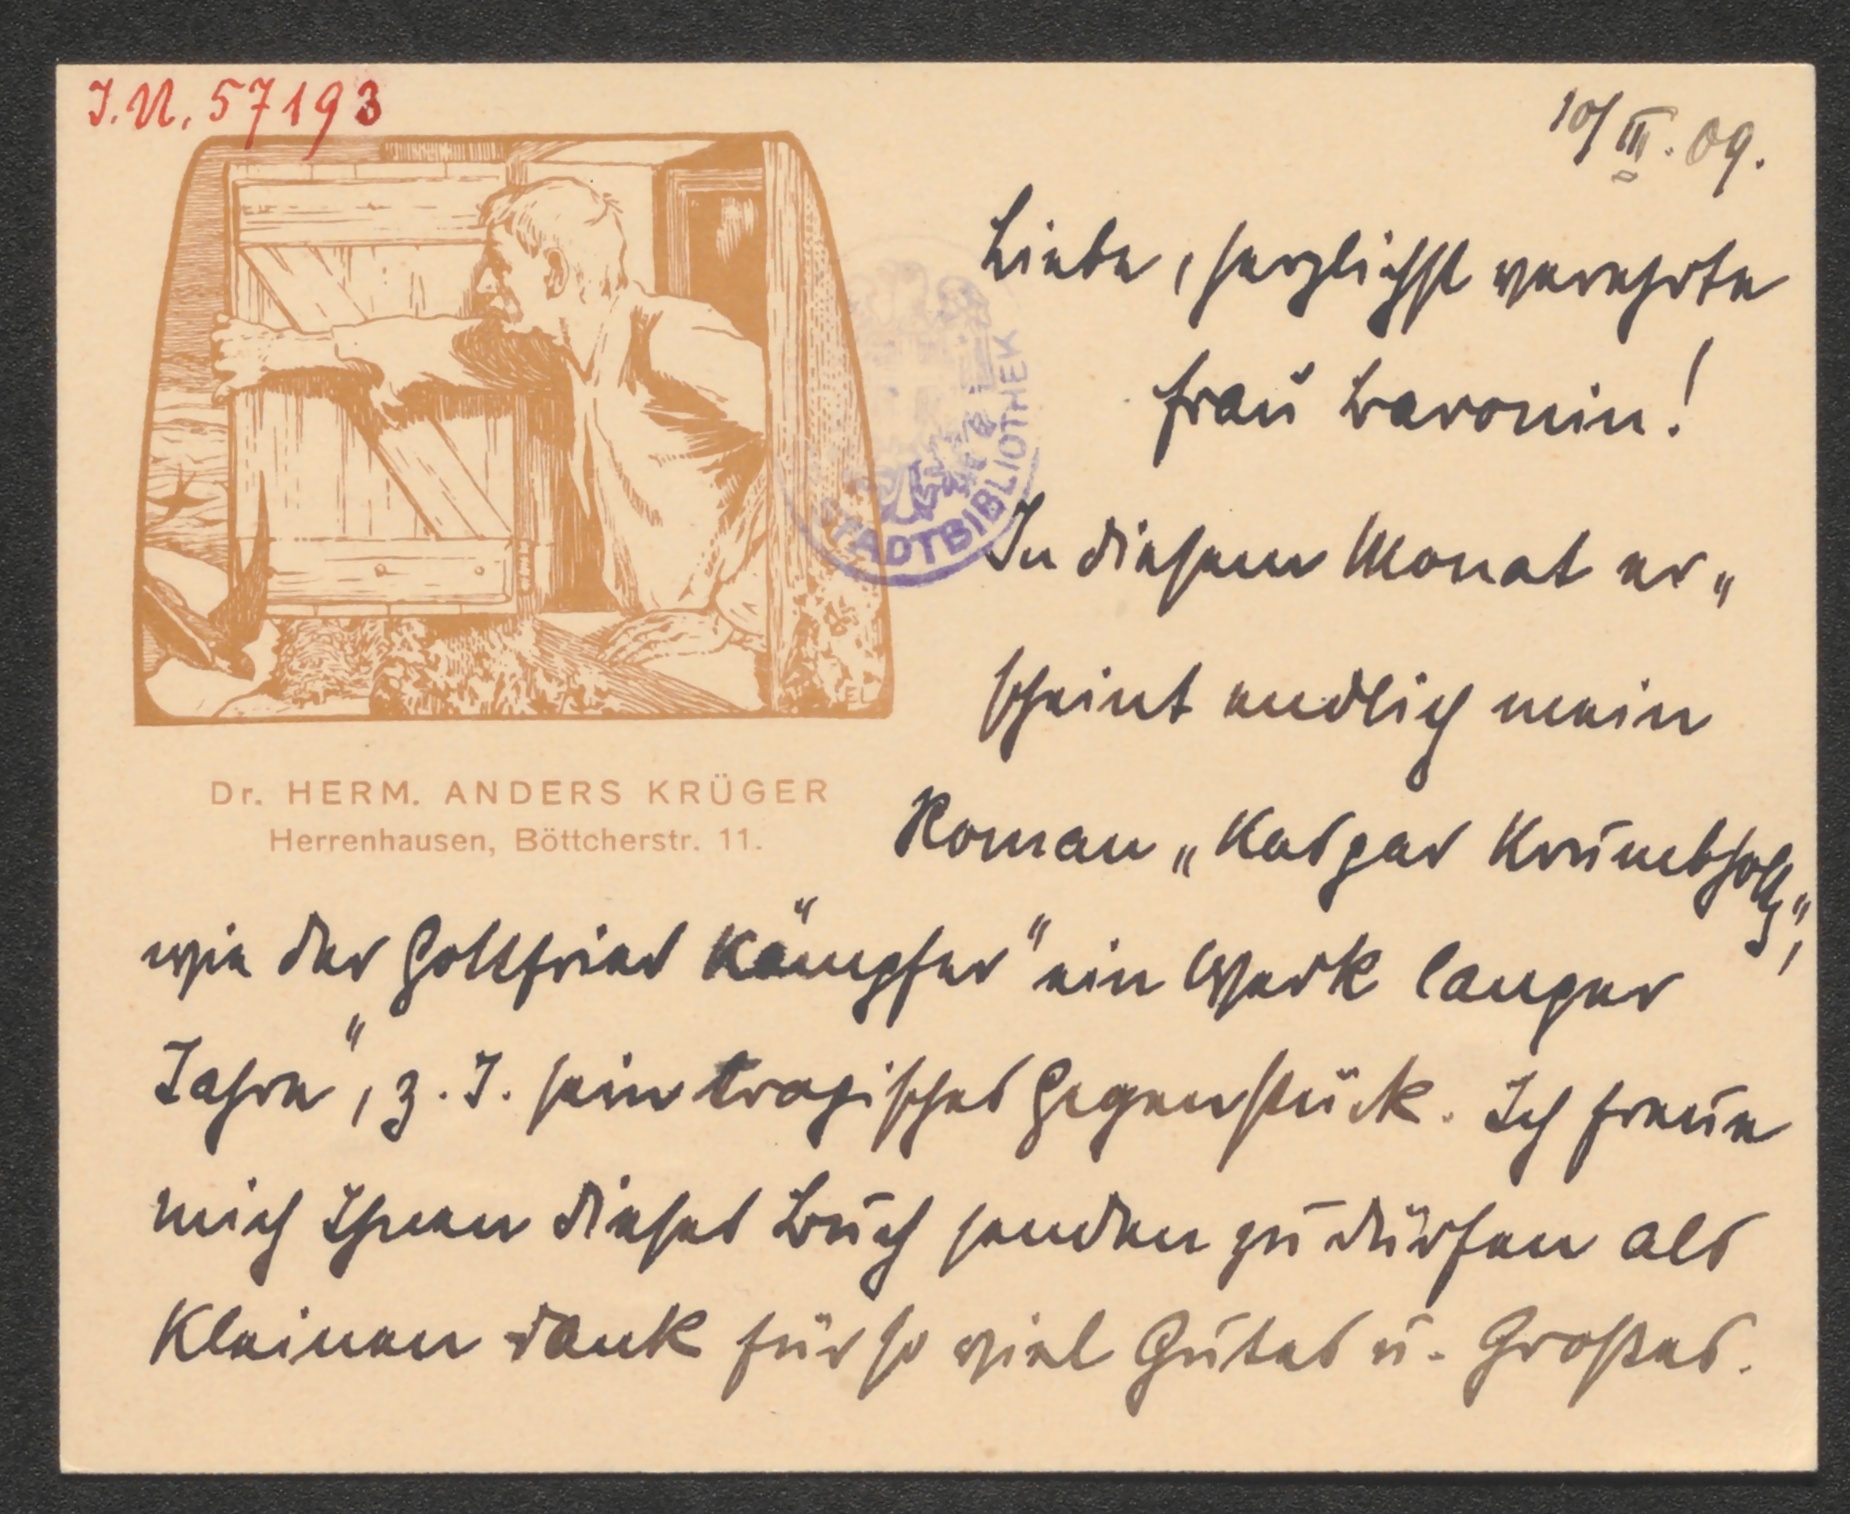 J.N. 57193
10/III. 09.
Liebe, herzlichst verehrte
Frau Baronin!
STADTBIBLIOTHEK
In diesem Monat er„
scheint endlich mein
Roman „Kaspar Krumbholtz“,
wie der Gottfried Kämpfer „ein Werk langer
Jahre“, z. T. sein tragisches Gegenstück. Ich freue
mich Ihnen dieses Buch senden zu dürfen als
kleinen Dank für so viel Gutes u. Großes.
EL
Dr. HERM. ANDERS KRÜGER
Herrenhausen, Böttcherstr. 11.